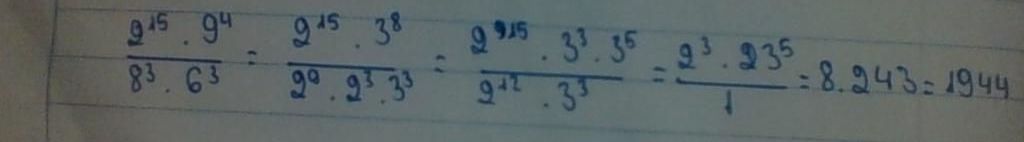 2^15 . 9^4 / 8^3 . 6^3 = 2^15 . 3^8 / 2^9 . 2^3 . 3^3 = 2^915 . 3^3 . 3^5 / 2^12 . 3^3 = 2^3 . 23^5 / 1 = 8.243 = 1944